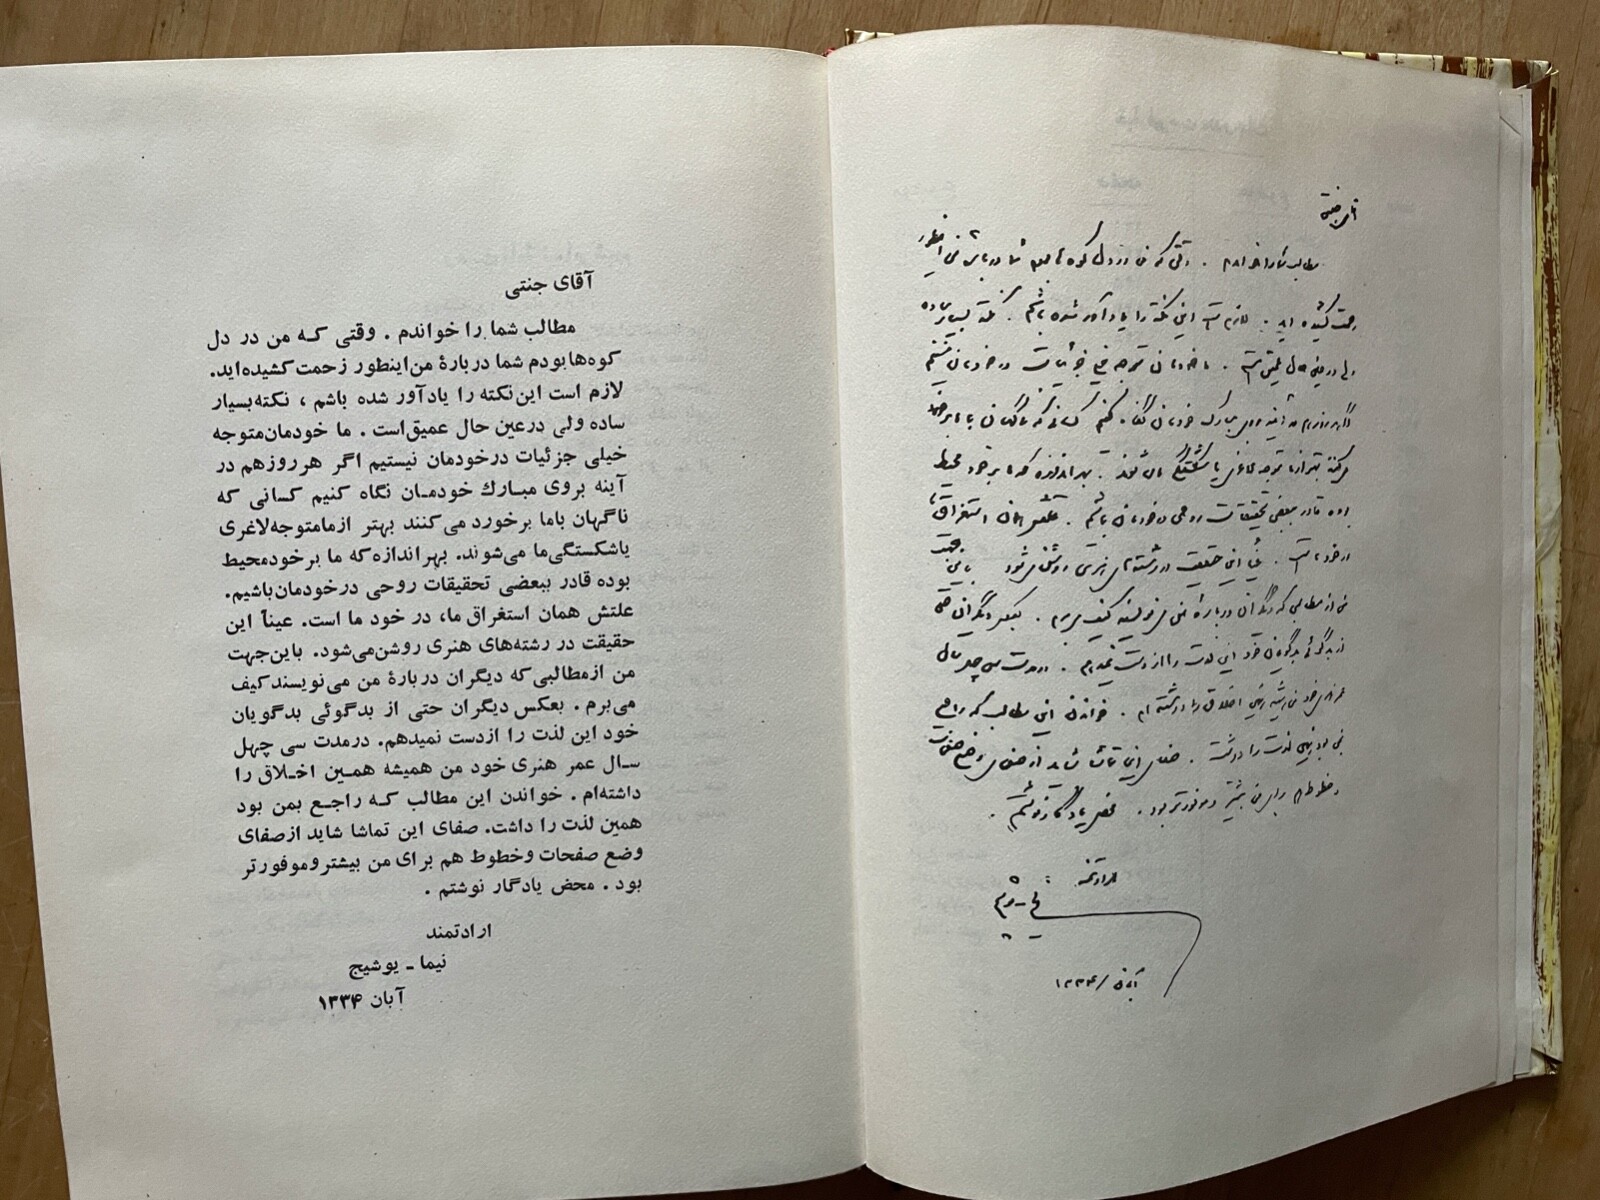 آقای جنتی
مطالب شما را خواندم . وقتی که من در دل کوه‌ها بودم شما درباره من اینطور
زحمت کشیده اید . لازم است این نکته را یادآور شده باشم . نکته بسیار ساده
ولی در عین حال عمیق است . ما خودمان متوجه خیلی جزئیات در خودمان نیستیم
اگر هر روز هم در آینه بروی مبارک خودمان نگاه کنیم کسانی که ناگهان با ما برخورد
می‌کنند بهتر از ما متوجه لاغری یا شکستگی ما می‌شوند . بهر اندازه که ما بر خود محیط
بوده قادر ببعضی تحقیقات روحی در خودمان باشیم . علتش همان استغراق ما،
در خود ما است . عیناً این حقیقت در رشته‌های هنری روشن می‌شود باین جهت
من از مطالبی که دیگران درباره من می‌نویسند کیف می‌برم . بعکس دیگران حتی
از بدگوئی بدگویان خود این لذت را از دست نمیدهم . در مدت سی چهل سال
عمر هنری خود من همیشه همین اخلاق را داشته‌ام . خواندن این مطالب که راجع
بمن بود همین لذت را داشت . صفای این تماشا شاید از صفای وضع صفحات
و خطوط هم برای من بیشتر و موفورتر بود . محض یادگار نوشتم .
ارادتمند
نیما ـ یوشیج
آبان / ۱۳۳۴
آقای جنتی
مطالب شما را خواندم . وقتی که من در دل
کوه‌ها بودم شما دربارهٔ من اینطور زحمت کشیده‌اید.
لازم است این نکته را یادآور شده باشم ، نکته بسیار
ساده ولی درعین حال عمیق است . ما خودمان متوجه
خیلی جزئیات درخودمان نیستیم اگر هر روز هم در
آینه بروی مبارك خودمان نگاه کنیم کسانی که
ناگهان باما برخورد می‌کنند بهتر ازما متوجه لاغری
یاشکستگی‌ما می‌شوند. بهر اندازه‌که ما برخود محیط
بوده قادر ببعضی تحقیقات روحی درخودمان باشیم.
علتش همان استغراق ما، در خود ما است. عیناً این
حقیقت در رشته‌های هنری روشن می‌شود. باین‌جهت
من ازمطالبی که دیگران دربارهٔ من می‌نویسند کیف
می‌برم . بعکس دیگران حتی از بدگوئی بدگویان
خود این لذت را ازدست نمیدهم. درمدت سی چهل
سال عمر هنری خود من همیشه همین اخلاق را
داشته‌ام . خواندن این مطالب که راجع بمن بود
همین لذت را داشت. صفای این تماشا شاید ازصفای
وضع صفحات و خطوط هم برای من بیشتر و موفورتر
بود . محض یادگار نوشتم .
ارادتمند
نیما ـ یوشیج
آبان ۱۳۳۴